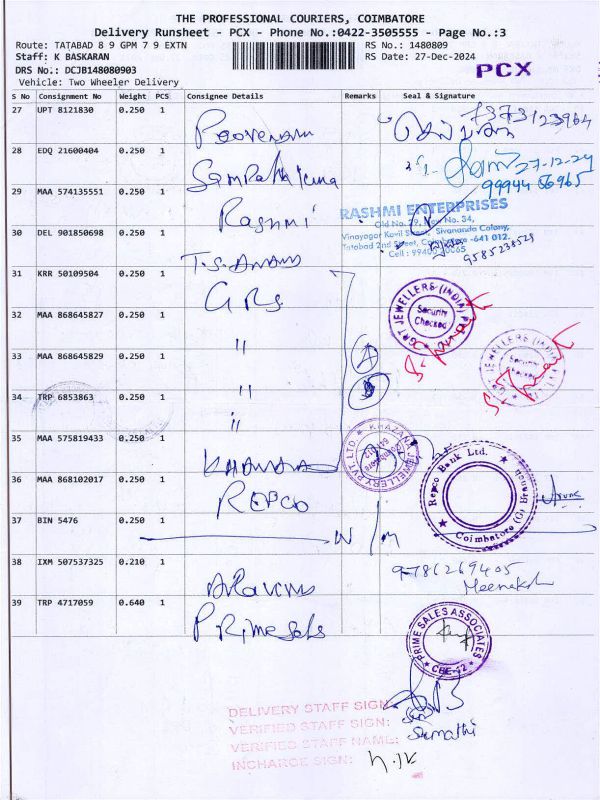 THE PROFESSIONAL COURIERS, COIMBATORE
Delivery Runsheet - PCX - Phone No.:0422-3505555 - Page No.:3
Route: TATABAD 8 9 GPM 7 9 EXTN
RS No.: 1480809
Staff: K BASKARAN
RS Date: 27-Dec-2024
PCX
DRS No.: DCJB148080903
Vehicle: Two Wheeler Delivery
S No Consignment No Weight PCS Consignee Details Remarks Seal & Signature
27 UPT 8121830 0.250 1 7373123964
28 EDQ 21600404 0.250 1 27-12-24
9994456965
29 MAA 574135551 0.250 1 Rashmi
RASHMI ENTERPRISES
Vinayagar Kovil Street, Sivananda Colony,
30 DEL 901850698 0.250 1 T.S. Anand
9585238529
31 KRR 50109504 0.250 1 GRS
GRT JEWELLERS (INDIA)
Security
Checked
32 MAA 868645827 0.250 1 "
33 MAA 868645829 0.250 1 "
34 TRP 6853863 0.250 1 "
35 MAA 575819433 0.250 1
KHAZANA JEWELLERY PVT. LTD.
36 MAA 868102017 0.250 1 REPCO
Repco Bank Ltd.
Coimbatore (G)
37 BIN 5476 0.250 1
38 IXM 507537325 0.210 1
9786269405
39 TRP 4717059 0.640 1 Prime Sales
PRIME SALES ASSOCIATES
CBE-12
DELIVERY STAFF SIGN
VERIFIED STAFF SIGN:
VERIFIED STAFF NAME: Sumathi
INCHARGE SIGN: